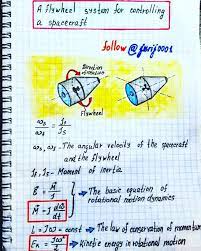 A flywheel system for controlling
a spacecraft
follow @farij000s
Direction
of motion
Flywheel
ω₂/ω₁ = J₁/J₂
- The angular velocity of the spacecraft
and the flywheel
- Moment of inertia
ε = M/J
M = J dω/dt
The basic equation of
rotational motion dynamics
L = Jω = const → The law of conservation of momentum
Eₖ = Jω²/2
Kinetic energy in rotational motion